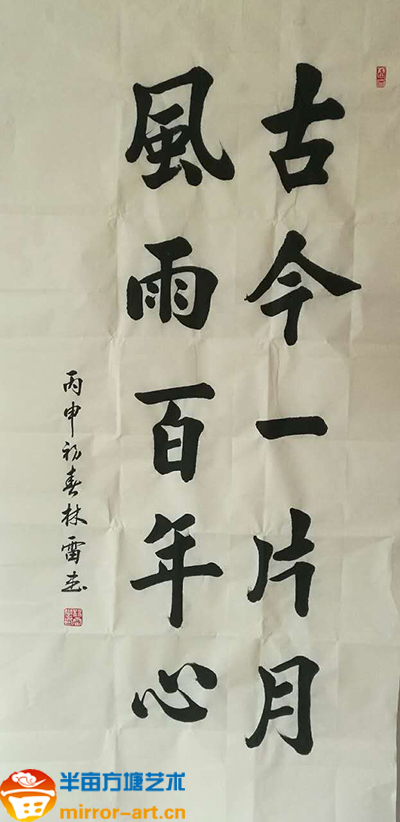 古今一片月
風雨百年心
丙申初春林雷志
半亩方塘艺术
mirror-art.cn